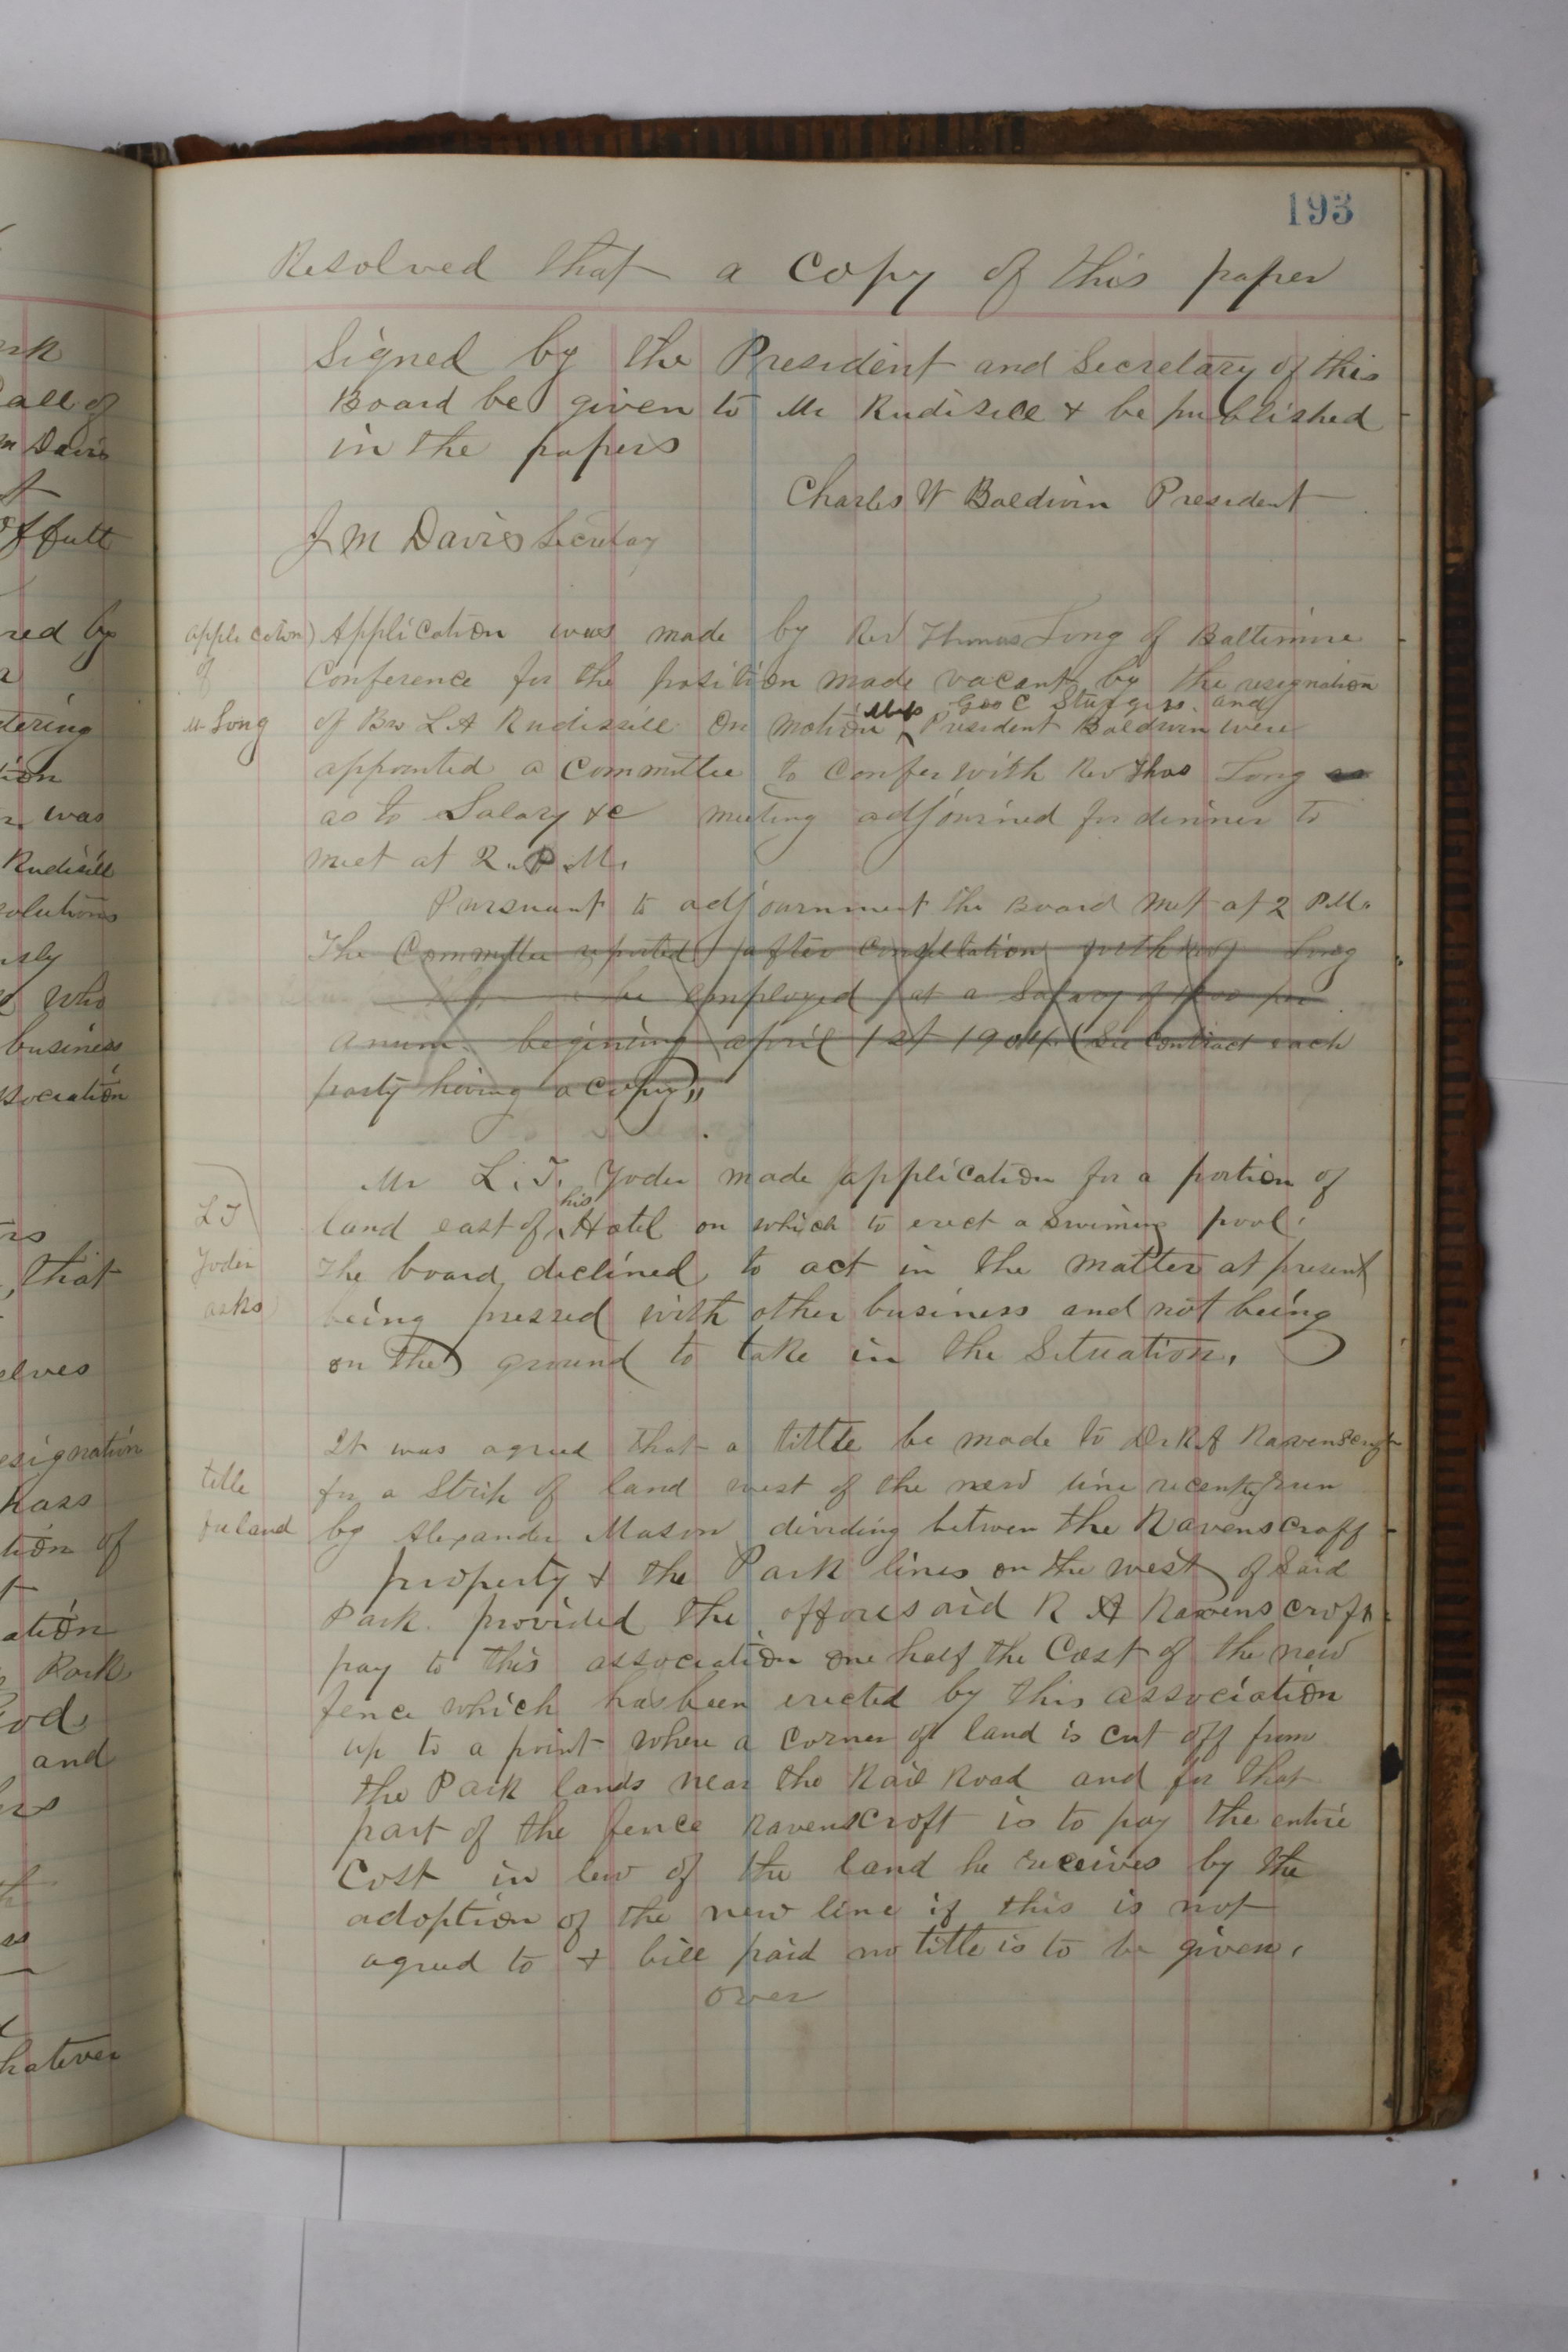 193
Resolved that a copy of this paper
Signed by the President and Secretary of this
Board be given to Mr Rudisill & be published
in the papers
Charles W Baldwin President
J M Davis Secretary
application of Mr Long
Application was made by Rev Thomas Long of Baltimore
Conference for the position made vacant by the resignation
of Bro L A Rudisill On motion Messrs Geo C Sturgiss and President Baldwin were
appointed a Committee to Confer with Rev Thos Long
as to Salary &c meeting adjourned for dinner to
meet at 2 P.M.
Pursuant to adjournment the Board met at 2 P.M.
The Committee reported after Consultation with Long
be employed at a Salary of per
anum begining april 1st 1904 (See Contract each
party having a copy)
L T Yoder asks
Mr L. T. Yoder made application for a portion of
land east of his Hotel on which to erect a Swiming pool.
The board declined to act in the matter at present
being pressed with other business and not being
on the ground to take in the Situation.
title to land
It was agreed that a tittle be made to Dr R A Ravenscroft
for a Strip of land west of the new line recently run
by Alexander Mason dividing betwen the Ravenscroff
property & the Park lines on the west of Said
Park provided the afforesaid R A Ravenscroft
pay to this association one half the Cost of the new
fence which has been erected by this association
up to a point where a corner of land is cut off from
the Park lands near the Rail Road and for that
part of the fence Ravenscroft is to pay the entire
Cost in lew of the land he receives by the
adoption of the new line if this is not
agreed to & bill paid no title is to be given.
over